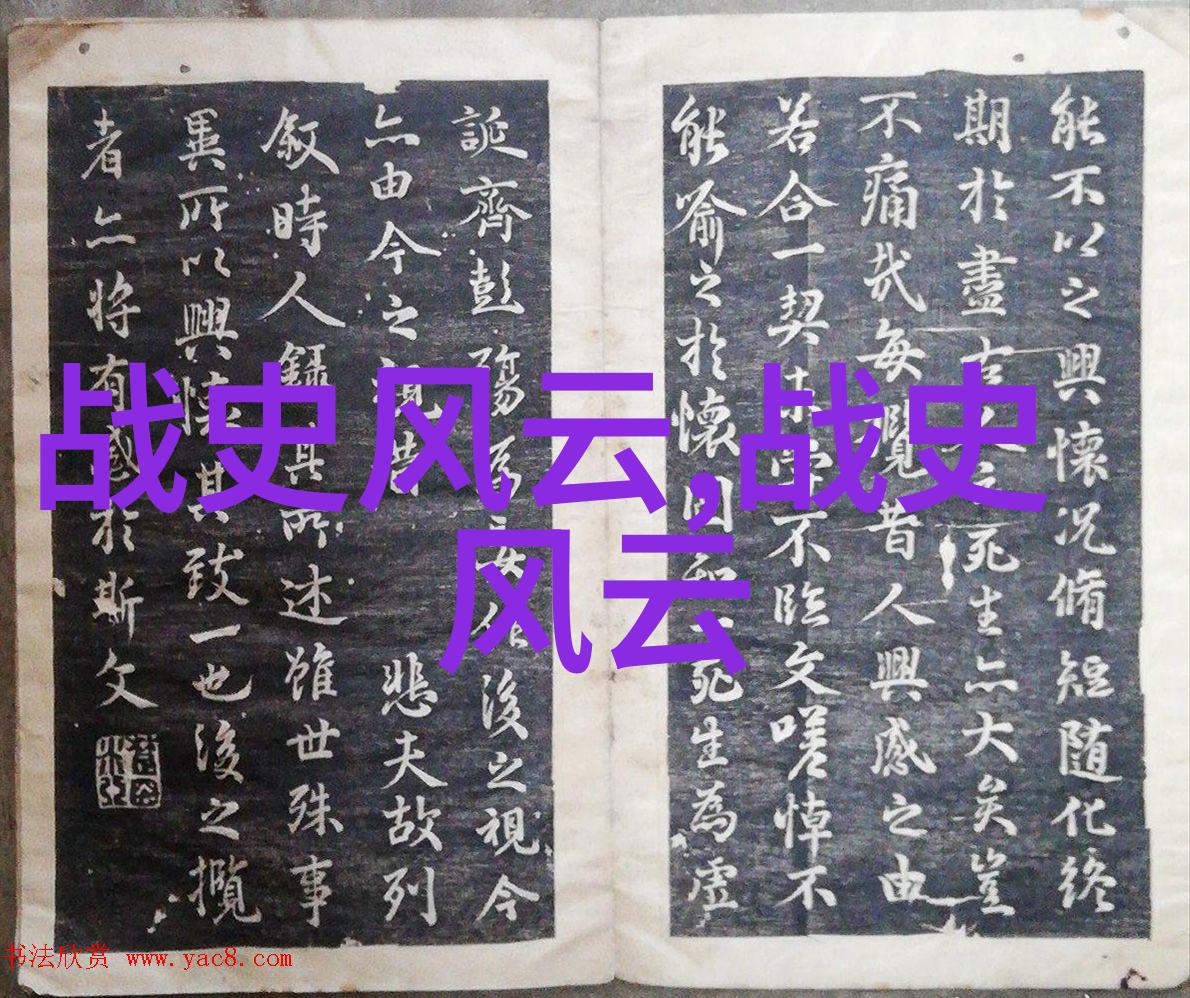 能不以之興懷況脩短随化終
期於盡古死生亦大矣豈
不痛哉每覽昔人興感之由
若合一契不臨文嗟悼不
能喻之於懷固死生為虛
誕齊彭殤妄作後之視今
亦由今之視昔悲夫故列
敘時人錄其所述雖世殊事
異所以興懷其致一也後之攬
者亦將有感於斯文
战史风云,战史
风云
书法欣赏 www.yac8.com